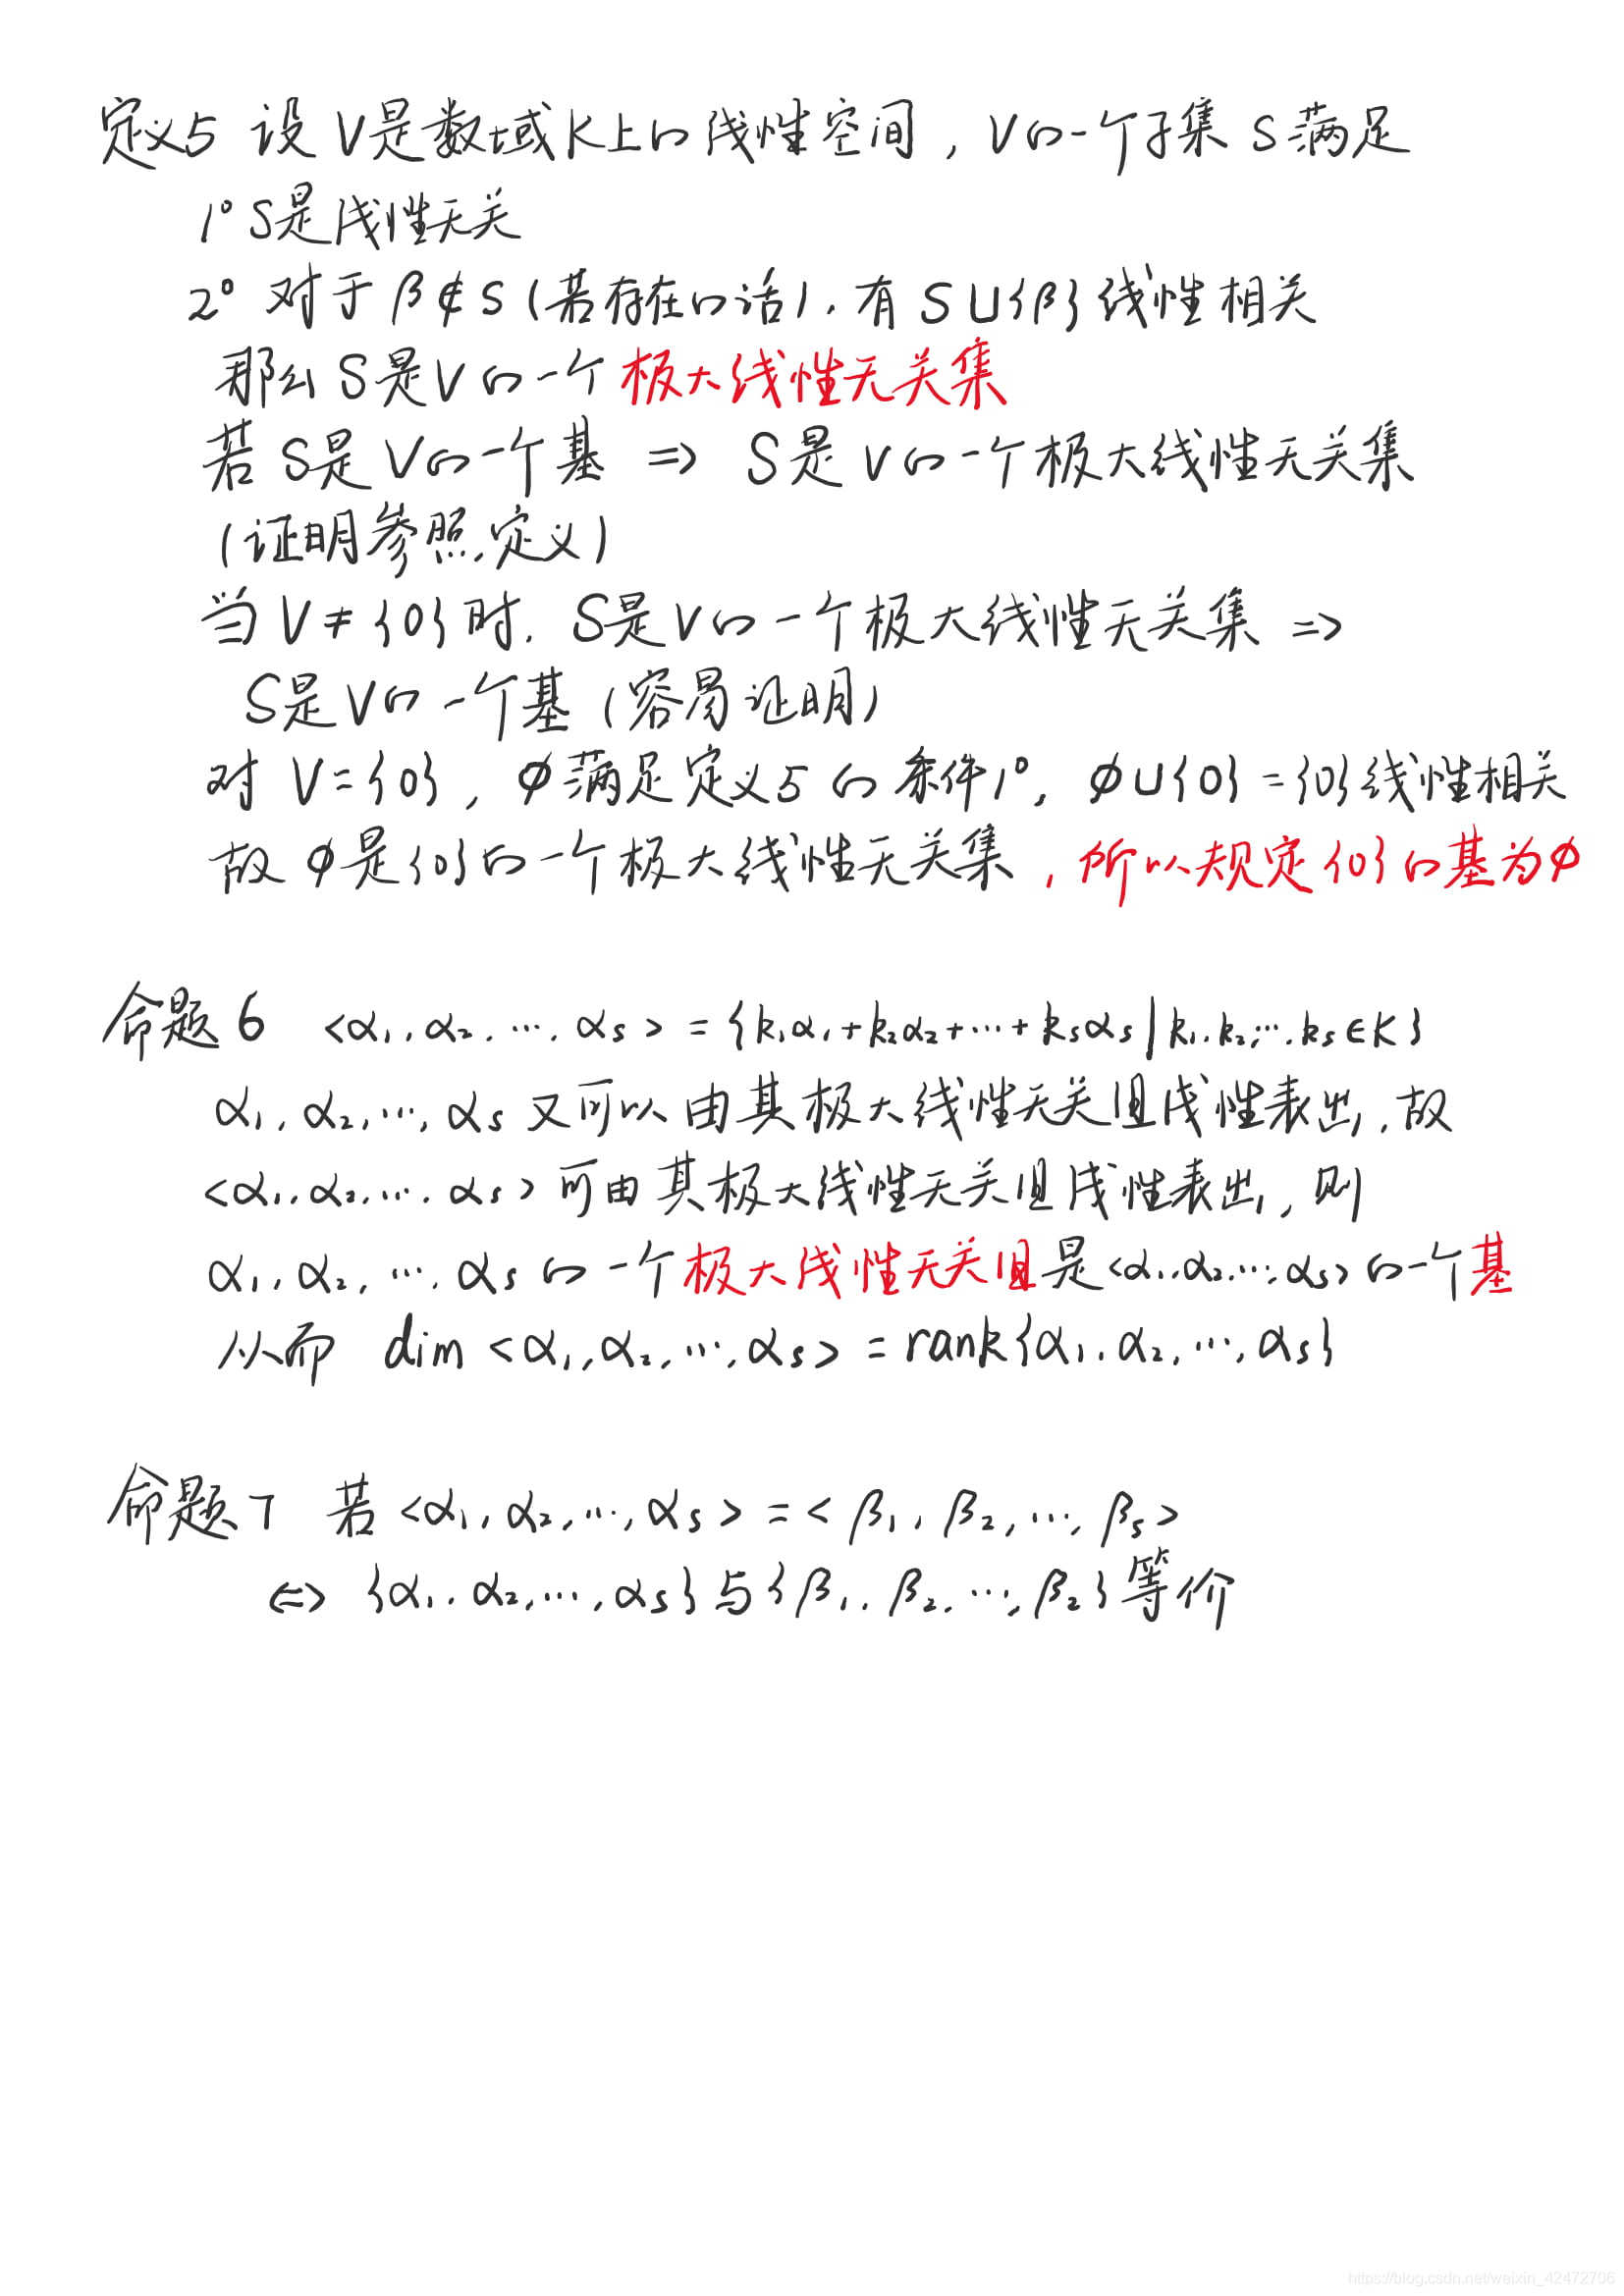 定义5 设V是数域K上的线性空间，V的一个子集S满足
1° S是线性无关
2° 对于β∉S(若存在的话)，有S∪{β}线性相关
那么S是V的一个极大线性无关集
若S是V的一个基 => S是V的一个极大线性无关集
(证明参照定义)
当V≠{0}时，S是V的一个极大线性无关集 =>
S是V的一个基(容易证明)
对V={0}，φ满足定义5的条件1°，φ∪{0}={0}线性相关
故φ是{0}的一个极大线性无关集，所以规定{0}的基为φ
命题6 <α₁,α₂,…,αs> = {k₁α₁+k₂α₂+…+ksαs|k₁,k₂,…,ks∈K}
α₁,α₂,…,αs又可以由其极大线性无关组线性表出，故
<α₁,α₂,…,αs>可由其极大线性无关组线性表出，则
α₁,α₂,…,αs的一个极大线性无关组是<α₁,α₂,…,αs>的一个基
从而 dim<α₁,α₂,…,αs> = rank{α₁,α₂,…,αs}
命题7 若<α₁,α₂,…,αs> = <β₁,β₂,…,βs>
<=> {α₁,α₂,…,αs}与{β₁,β₂,…,β₂}等价
https://blog.csdn.net/weixin_42472706